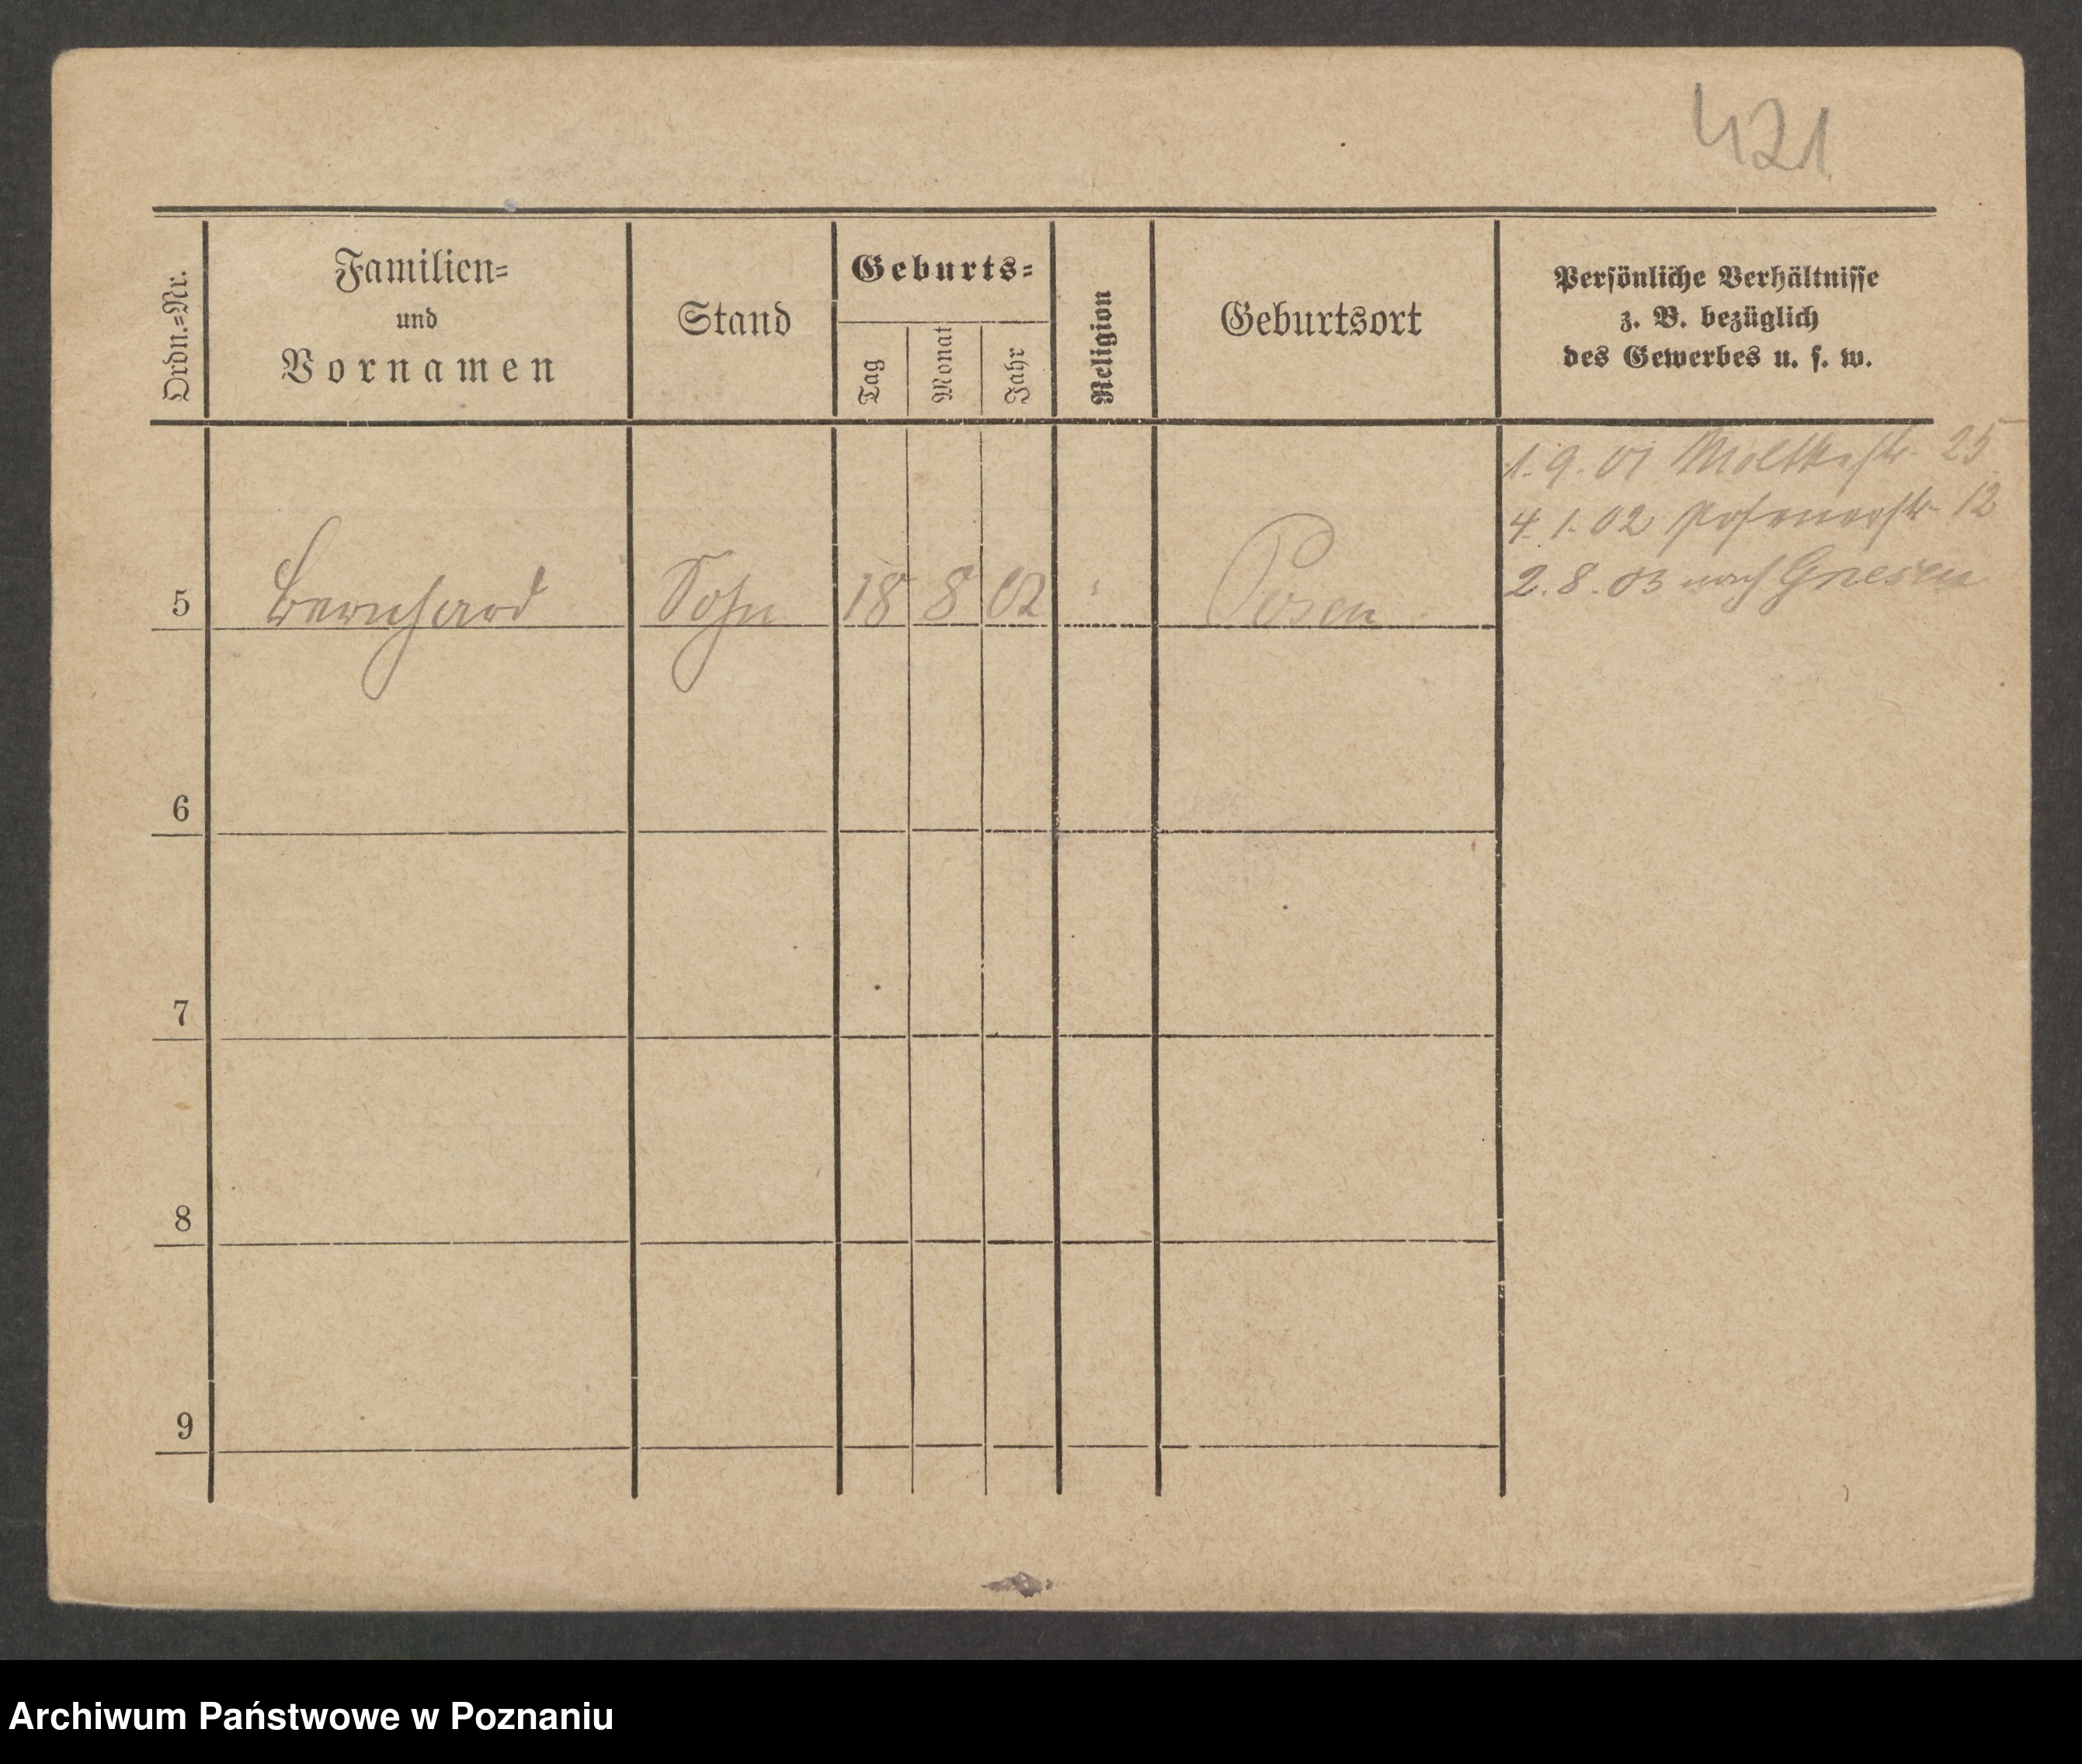 421
Ordn.=Nr.
Familien=
und
Vornamen
Stand
Geburts=
Tag
Monat
Jahr
Religion
Geburtsort
Persönliche Verhältnisse
z. B. bezüglich
des Gewerbes u. s. w.
1. 9. 01 Moltkestr. 25
4. 1. 02 Posenerstr. 12
2. 8. 03 nach Gnesen
5 Bernhard Sohn 18 8 02 " Posen
6
7
8
9
Archiwum Państwowe w Poznaniu